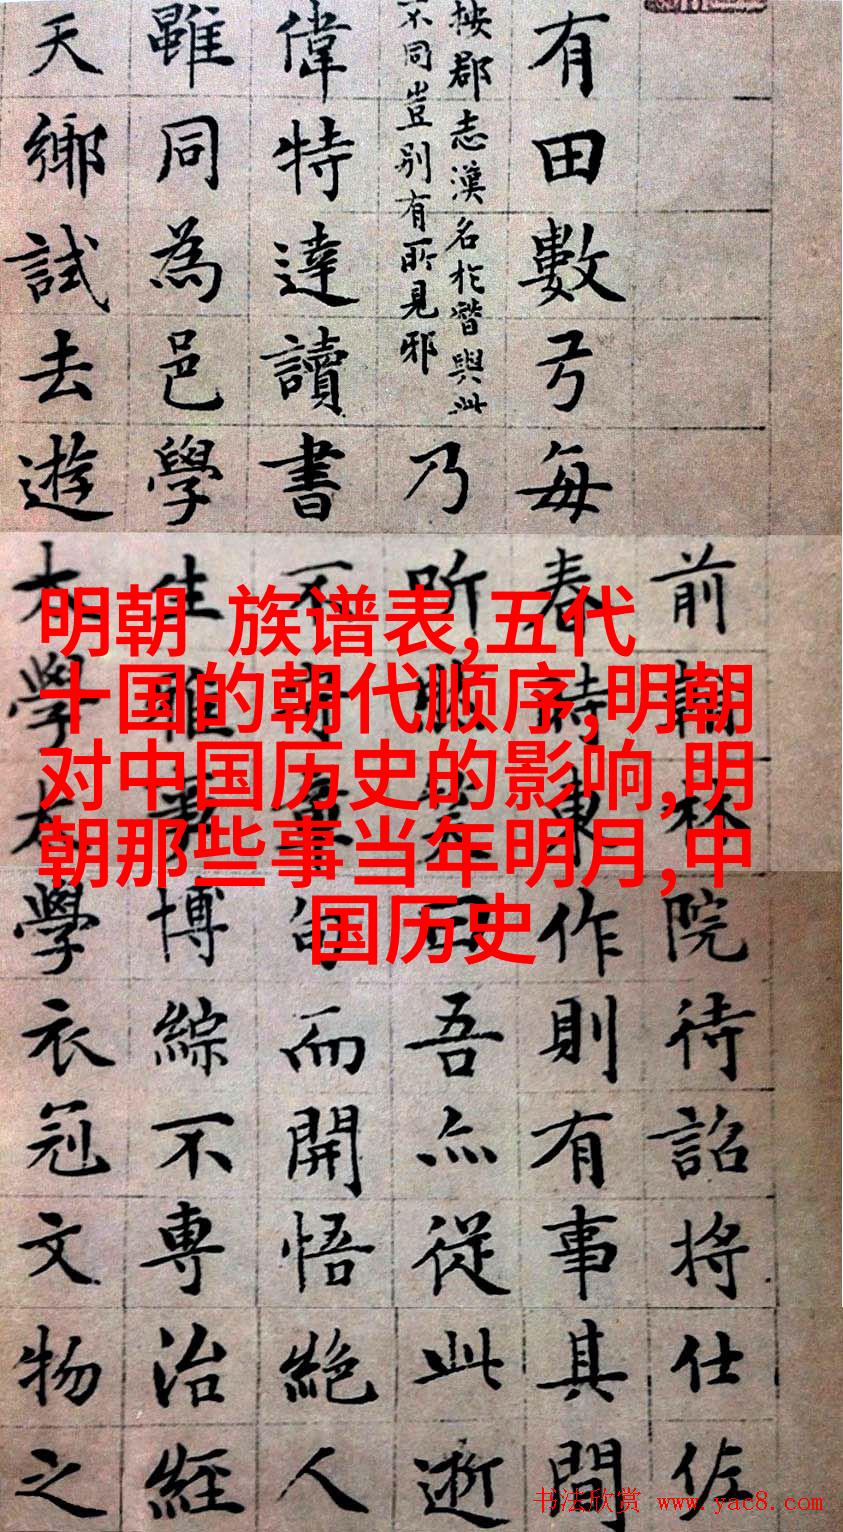 明朝 族谱表,五代
十国的朝代顺序,明朝
对中国历史的影响,明
朝那些事当年明月,中
国历史
前翰林院待詔將仕佐
有田數弓每春時東作則有事其間
按郡志漢名於潛與此
不同豈別有所見邪
乃所吾亦從此逝
偉特達讀書不守章句而開悟絕人
雖同為邑學生雅博綜不專治經
天鄉試去遊太學太學衣冠文物之
书法欣赏 www.yac8.com